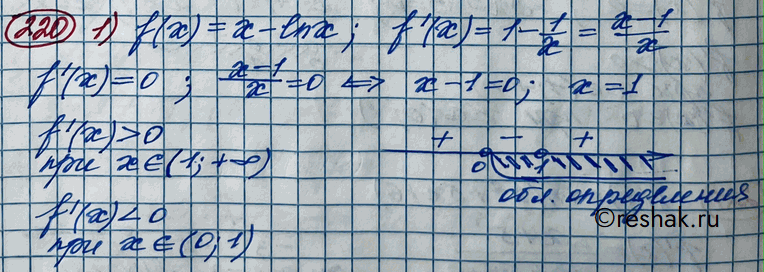 220 1) f(x) = x - ln x; f'(x) = 1 - 1/x = (x-1)/x
f'(x) = 0 ; (x-1)/x = 0 <=> x - 1 = 0; x = 1
f'(x) > 0
при x ∈ (1; +∞)
+ - +
0 1
обл. определения
f'(x) < 0
при x ∈ (0; 1)
©reshak.ru